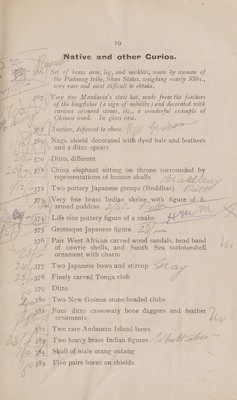 19
Native and other Curios.
Set of brass arm, leg, and necklets, worn by women of
the Padaung tribe, Shan States, weighing nearly 50lbs.,
very rare and most difficult to obtain.
Very fine Mandarin's state hat, made from the feathers
of the kingfisher (a sign of nobility) and decorated with
various coloured stones, etc., a wonderful example of
Chinese work. In glass case.
368 Another, different to above.
Naga shield decorated with dyed hair and feathers
and a ditto spears
370 Ditto, different
371 China elephant sitting on throne surrounded by
representations of human skulls
372 Two pottery Japanese groups (Buddhas)
373 Very fine brass Indian shrine with figure of
armed goddess
374 Life size pottery figure of a snake
375 Grotesque Japanese figure
376 Pair West African carved wood sandals, head band
of cowrie shells, and South Sea tortoiseshell
ornament with charm
377 Two Japanese bows and stirrup Gray
378 Finely carved Tonga club
379 Ditto
380 Two New Guinea stone-headed clubs
381 Four ditto cassowary bone daggers and feather
ornaments
382 Two rare Andaman Island bows
383 Two heavy brass Indian figures
384 Skull of male orang outang
385 Five pairs horns on shields